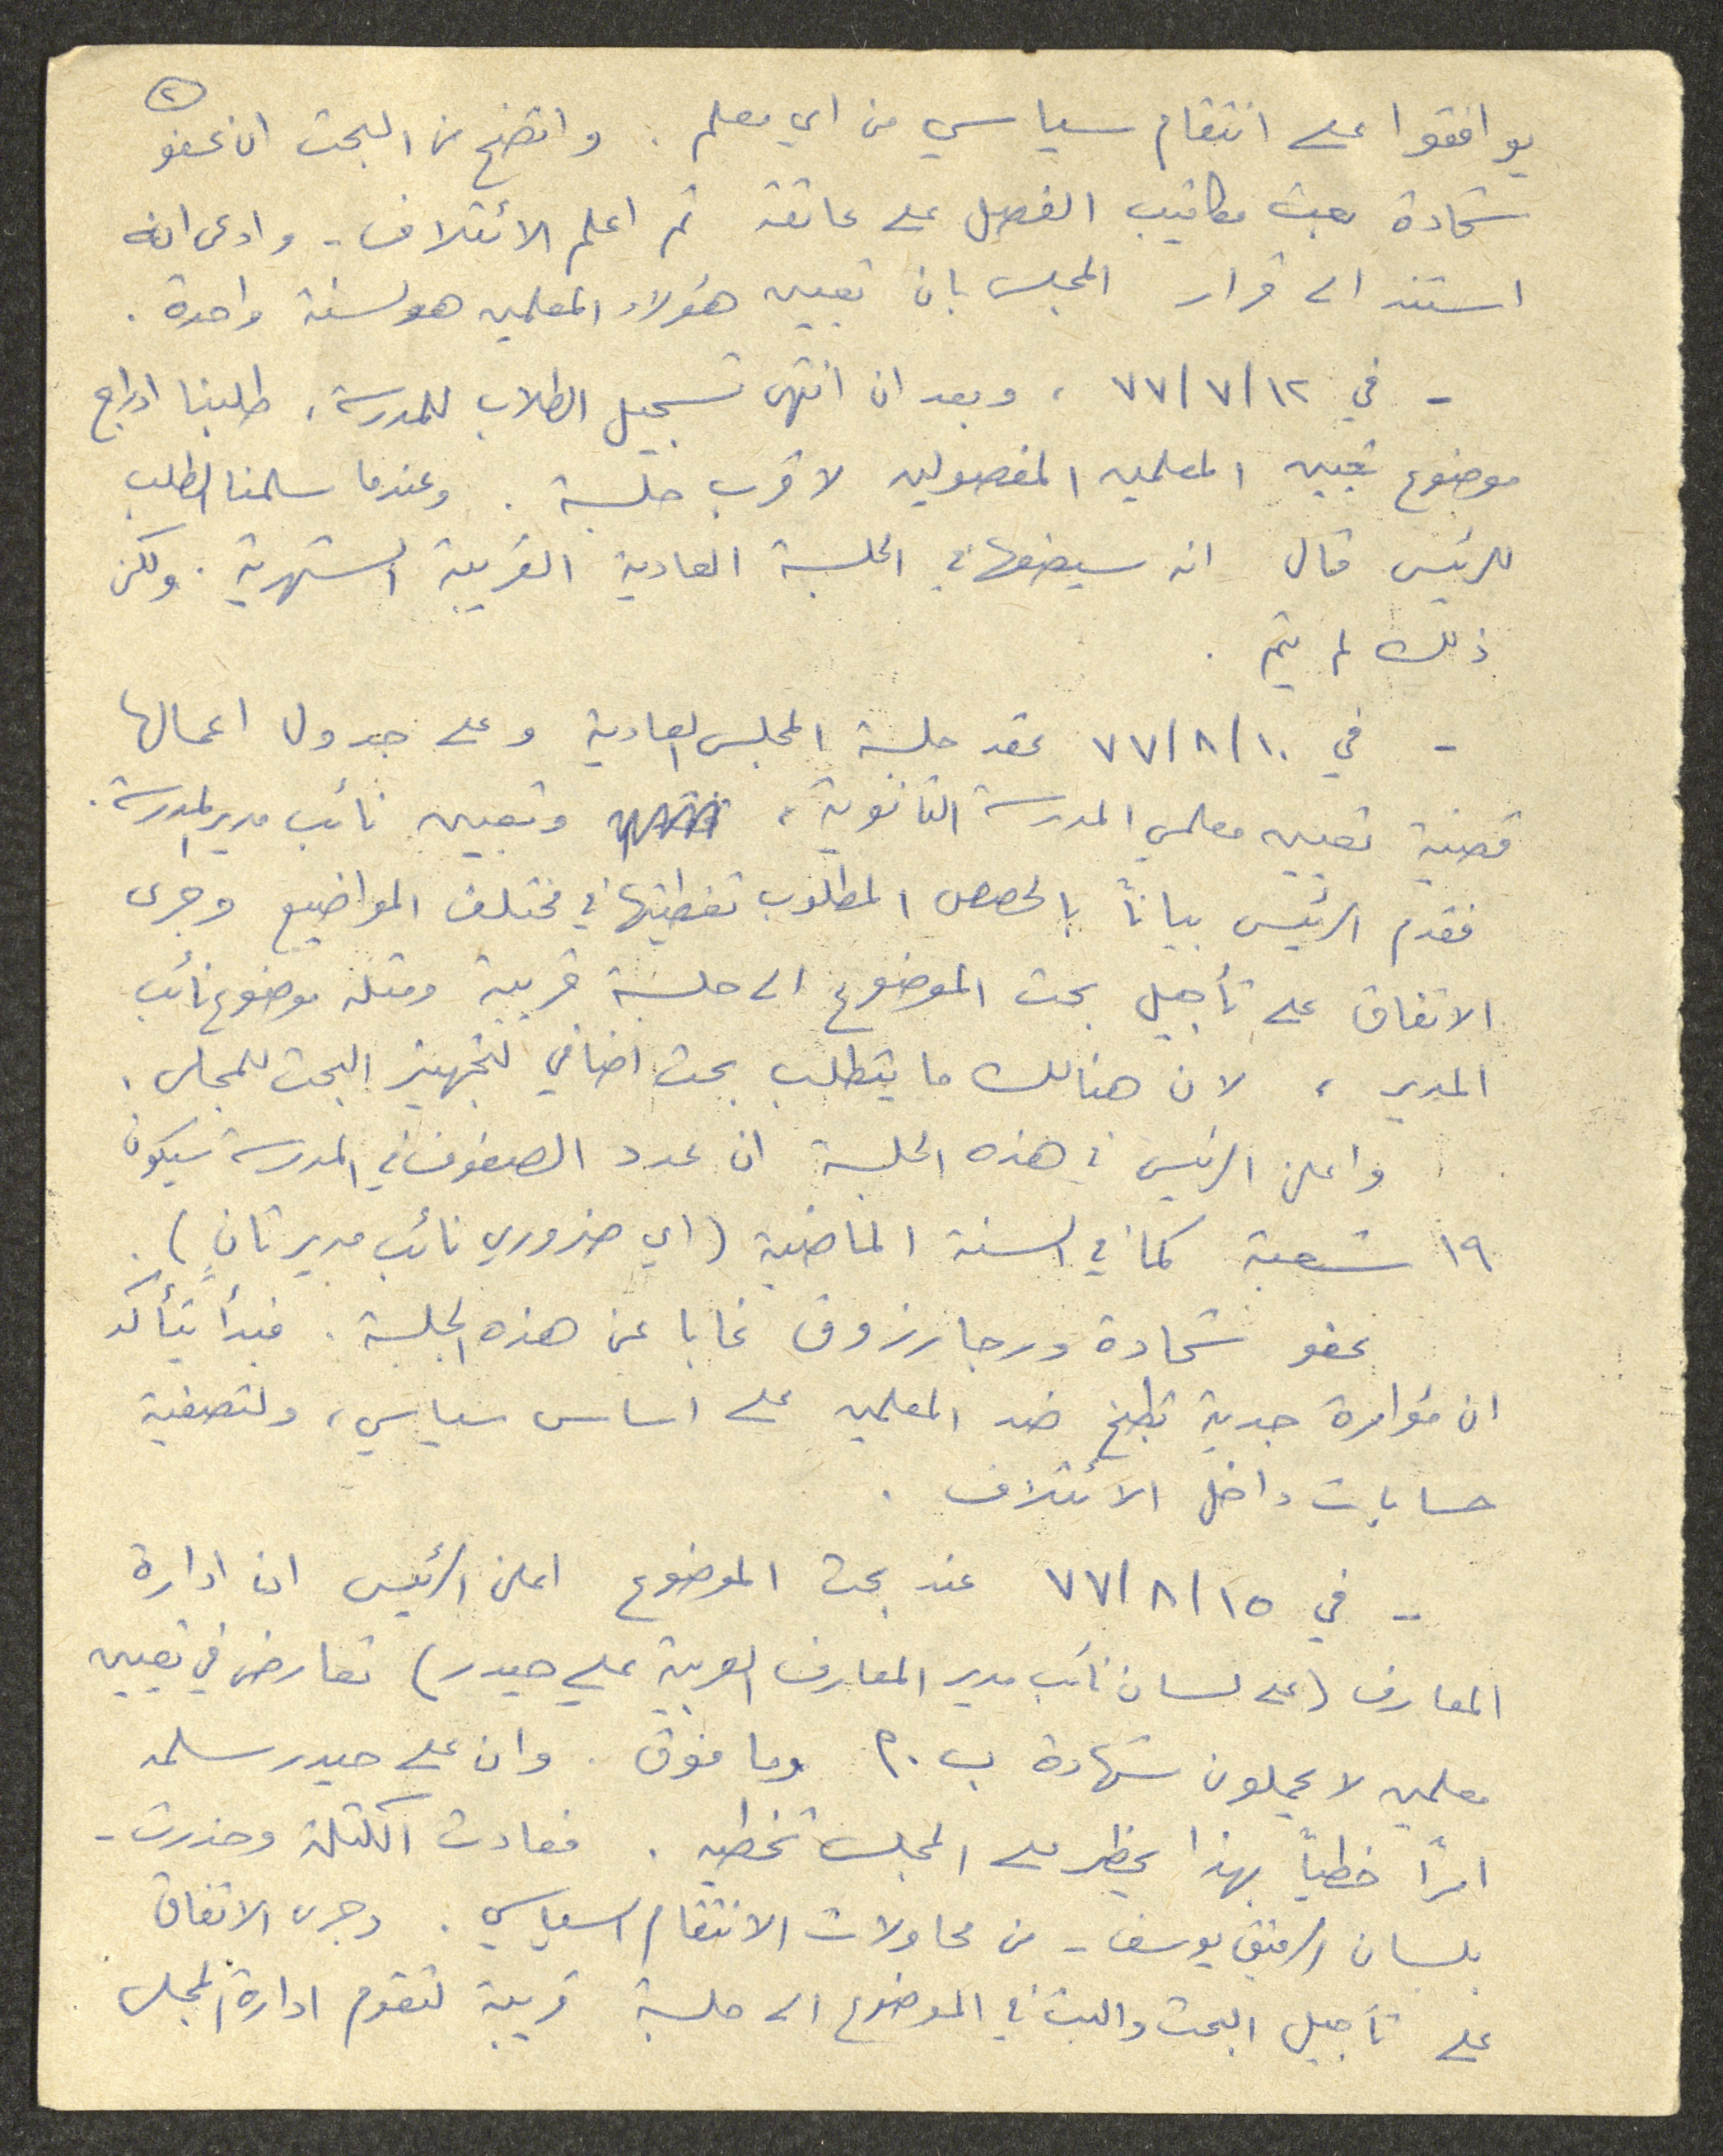 ٢
يوافقوا على انتقام سياسي من اي معلم . واتضح من البحث ان عفو
شحادة بعث مكاتيب الفصل على عاتقه ثم اعلم الائتلاف - وادعى انه
استند الى قرار المجلس بان تعيين هؤلاء المعلمين هو لسنة واحدة .
- في ٧٧/٧/١٢ ، وبعد ان انتهى تسجيل الطلاب للمدرسة ، طلبنا ادراج
موضوع تعيين المعلمين المفصولين لاقرب جلسة . وعندما سلمنا الطلب
للرئيس قال انه سيضعها في الجلسة العادية القريبة الشهرية . ولكن
ذلك لم يتم .
- في ٧٧/٨/١٠ عقد جلسة المجلس العادية وعلى جدول اعمالها
قضية تعيين معلمي المدرسة الثانوية ، وتعيين نائب مدير المدرسة .
فقدم الرئيس بياناً بالحصص المطلوب تغطيتها في مختلف المواضيع وجرى
الاتفاق على تأجيل بحث الموضوع الى جلسة قريبة ومثله موضوع نائب
المدير ، لان هنالك ما يتطلب بحث اضافي لتجهيز البحث للمجلس .
واعلن الرئيس في هذه الجلسة ان عدد الصفوف في المدرسة سيكون
١٩ شعبة كما في السنة الماضية (اي ضروري نائب مدير ثانٍ) .
عفو شحادة ورجا رزوق غابا عن هذه الجلسة . فبدأ يتأكد
ان مؤامرة جدية تطبخ ضد المعلمين على اساس سياسي ، ولتصفية
حسابات داخل الائتلاف .
- في ٧٧/٨/١٥ عند بحث الموضوع اعلن الرئيس ان ادارة
المعارف (على لسان نائب مدير المعارف العربية علي حيدر) تعارض في تعيين
معلمين لا يحملون شهادة ب.م وما فوق . وان علي حيدر سلمه
امراً خطياً بهذا يحظر على المجلس تخطيه . فعادت الكتلة وحذرت -
بلسان الرفيق يوسف - من محاولات الانتقام السياسي . وجرى الاتفاق
على تأجيل البحث والبت في الموضوع الى جلسة قريبة لتقوم ادارة المجلس